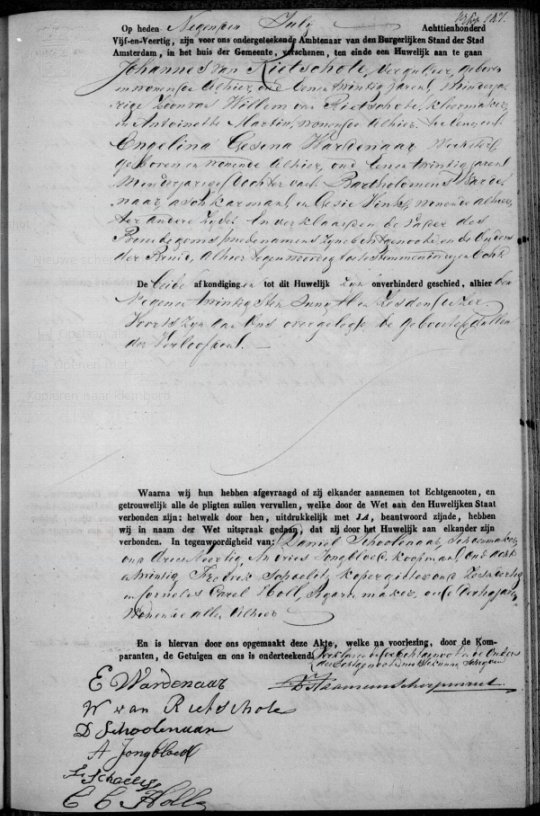 Op heden Negentien July Achttienhonderd
Vijf-en-Veertig, zijn voor ons ondergeteekende Ambtenaar van den Burgerlijken Stand der Stad
Amsterdam, in het huis der Gemeente, verschenen, ten einde een Huwelijk aan te gaan
Johannes van Rietschote, Vergulder, geboren
en wonende Alhier, oud eenentwintig Jaren, Minderja-
rige Zoon van Willem van Rietschote,
en Antoinette Martin, wonende Alhier. Ter eenre, en
Engelina Gesena Wardenaar
geboren en wonende Alhier, oud eenentwintig Jaren
Minderjarige Dochter van Bartholomeus Warde-
naar, aschkarman, en Gesie Vink, wonende alhier,
ter andere Zyde. En verklaarden de Vader des
Bruidegoms, mede namens zyne Echtgenoote, en de Ouders
der Bruid, Alhier tegenwoordig toetestemmen in deze Echt.
De beide afkondigingen tot dit Huwelijk zijn onverhinderd geschied, alhier den
Negenentwintigsten Juny en Zesden dezer
Voorts zyn aan Ons overgelegd de geboorte Extracten
der Verloofden.
Waarna wij hun hebben afgevraagd of zij elkander aannemen tot Echtgenooten, en
getrouwelijk alle de pligten zullen vervullen, welke door de Wet aan den Huwelijken Staat
verbonden zijn: hetwelk door hen, uitdrukkelijk met JA, beantwoord zijnde, hebben
wij in naam der Wet uitspraak gedaan, dat zij door het Huwelijk aan elkander zijn
verbonden. In tegenwoordigheid van: Daniel Schoolenaar, Schoenmaker,
oud drieenveertig, Andries Jongbloed, koopman, oud acht
entwintig, Fredrik Schaelij, kopergieter oud zesenveertig
en Cornelis Carel Holl, Sigarenmaker, oud
wonende alle Alhier
En is hiervan door ons opgemaakt deze Akte, welke na voorlezing, door de Kom-
paranten, de Getuigen en ons is onderteekend.
E Wardenaar
W van Rietschote
D Schoolenaar
A Jongbloed
F Schaelij
C C Holl